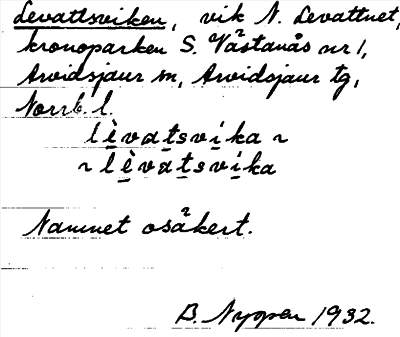 Levattsviken, vik N. Levattnet,
kronoparken S. Västanås nr 1,
Arvidsjaur sn, Arvidsjaur tg,
Norrb. l.
lèvatsvika ~
~ lèvatsvika
Namnet osäkert.
B. Nygren 1932.